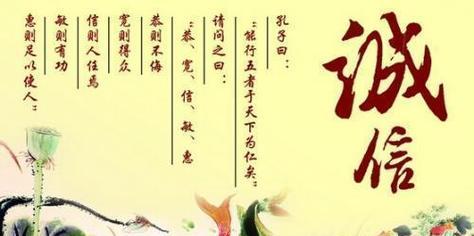 誠信
孔子曰：
“能行五者于天下为仁矣。”
请问之曰：
“恭、宽、信、敏、惠
恭则不侮
宽则得众
信则人任焉
敏则有功
惠则足以使人。”